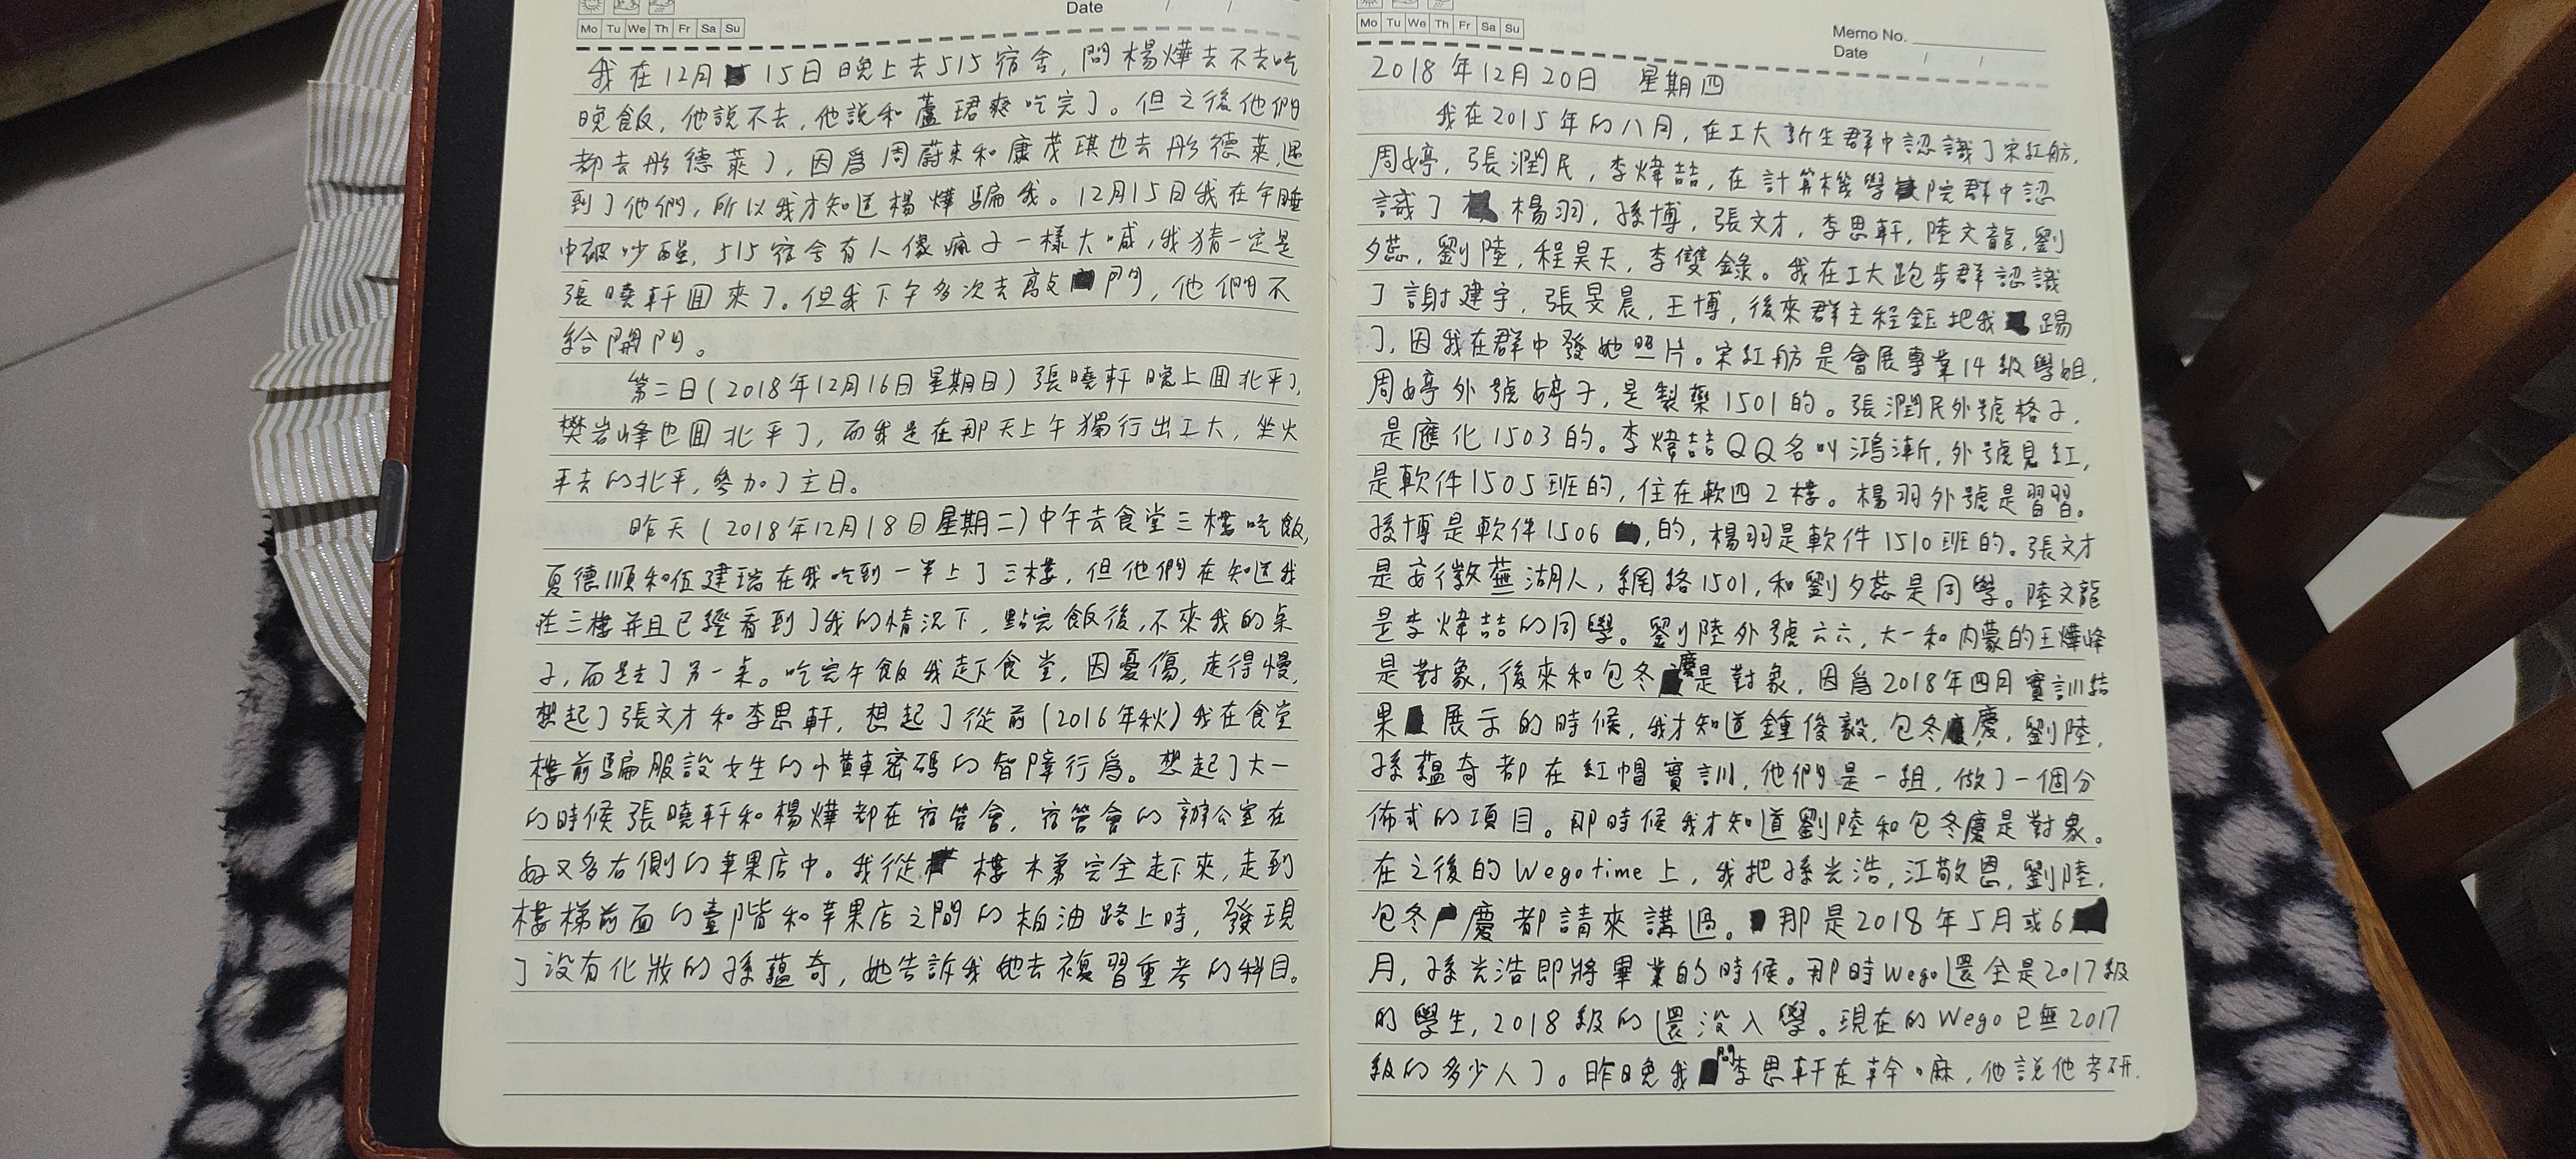 Date / /
Mo Tu We Th Fr Sa Su
我在12月15日晚上去515宿舍,問楊燁去不去吃
晚飯,他說不去,他說和蘆珺爽吃完了。但之後他們
都去彤德萊了,因爲周蔚來和康茂琪也去彤德萊,遇
到了他們,所以我才知道楊燁騙我。12月15日我在午睡
中被吵醒,515宿舍有人像瘋子一樣大喊,我猜一定是
張曉軒回來了。但我下午多次去敲門,他們不
給開門。
第二日(2018年12月16日星期日)張曉軒晚上回北平了,
樊岩峰也回北平了,而我是在那天上午獨行出工大,坐火
车去的北平,參加了主日。
昨天(2018年12月18日星期二)中午去食堂三樓吃飯,
夏德順和伍建瑞在我吃到一半上了三樓,但他們在知道我
在三樓并且已經看到了我的情況下,點完飯後,不來我的桌
子,而是去了另一桌。吃完午飯我走下食堂,因憂傷,走得慢,
想起了張文才和李思軒,想起了從前(2016年秋)我在食堂
樓前騙服設女生的小黃車密碼的智障行爲。想起了大一
的時候張曉軒和楊燁都在宿管會,宿管會的辦公室在
每又多右側的苹果店中。我從樓梯完全走下來,走到
樓梯前面的臺階和苹果店之間的柏油路上時,發現
了没有化妝的孫蘊奇,她告訴我她去複習重考的科目。
Mo Tu We Th Fr Sa Su
Memo No.
Date / /
2018年12月20日 星期四
我在2015年的八月,在工大新生群中認識了宋紅舫,
周婷,張潤民,李煒喆,在計算機學院群中認
識了楊羽,孫博,張文才,李思軒,陸文龍,劉
夕蕊,劉陸,程昊天,李雙錄。我在工大跑步群認識
了謝建宇,張旻晨,王博,後來群主程鈺把我踢
了,因我在群中發她照片。宋紅舫是會展專業14級學姐,
周婷外號婷子,是製藥1501的。張潤民外號格子,
是應化1503的。李煒喆QQ名叫鴻漸,外號見紅,
是軟件1505班的,住在軟四2樓。楊羽外號是習習。
孫博是軟件1506,的,楊羽是軟件1510班的。張文才
是安徽蕪湖人,網絡1501,和劉夕蕊是同學。陸文龍
是李煒喆的同學。劉陸外號六六,大一和内蒙的王燁峰
是對象,後來和包冬慶是對象,因爲2018年四月實訓結
果展示的時候,我才知道鍾俊毅,包冬慶,劉陸,
孫蘊奇都在紅帽實訓,他們是一組,做了一個分
佈式的項目。那時候我才知道劉陸和包冬慶是對象。
在之後的Wegotime上,我把孫光浩,江敬恩,劉陸,
包冬慶都請來講過。那是2018年5月或6
月,孫光浩即將畢業的時候。那時Wego還全是2017級
的學生,2018級的還没入學。現在的Wego已無2017
級的多少人了。昨晚我問李思軒在幹嘛,他說他考研.